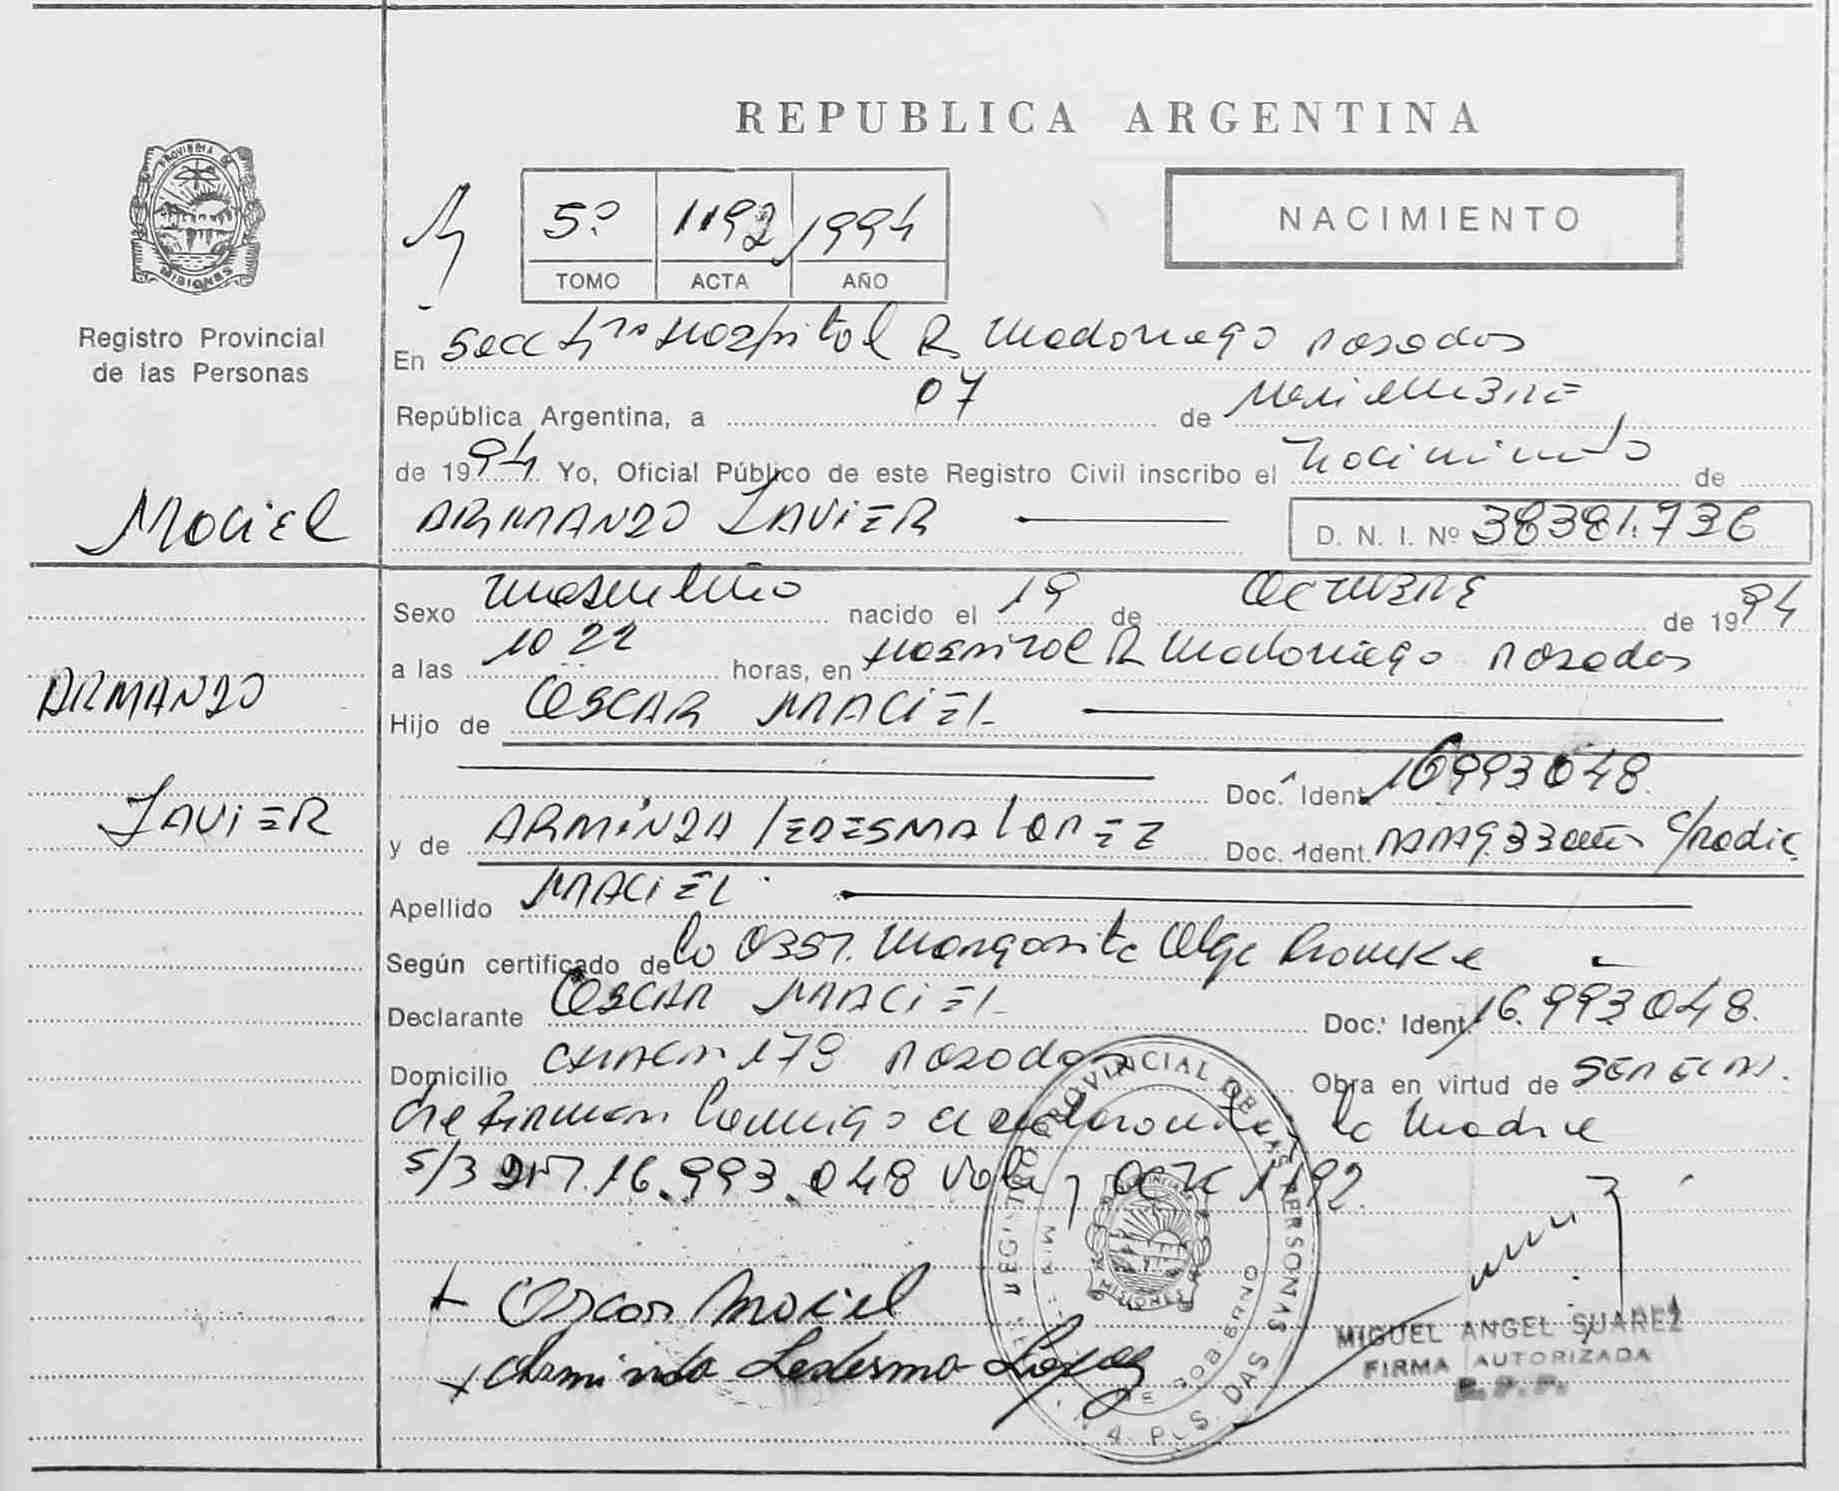 REPUBLICA ARGENTINA
PROVINCIA DE
MISIONES
5º 1192 1994
TOMO ACTA AÑO
NACIMIENTO
Registro Provincial
de las Personas
En Secc 4ta Hospital R Madariaga Posadas
República Argentina, a 07 de Noviembre
de 1994 Yo, Oficial Público de este Registro Civil inscribo el nacimiento de
Maciel
ARMANDO JAVIER
D. N. I. Nº 38381.736
Sexo masculino nacido el 19 de OCTUBRE de 1994
a las 10 22 horas, en Hospital R Madariaga Posadas
ARMANDO
Hijo de OSCAR MACIEL
Doc. Ident. 16993048
JAVIER
y de ARMINDA LEDESMA LOPEZ Doc. Ident. 33 años c/radic
Apellido MACIEL
Según certificado de la Obst. Margarita Olga
Declarante OSCAR MACIEL Doc. Ident. 16.993.048.
Domicilio 179 Posadas Obra en virtud de
firman conmigo el declarante y la Madre
s/3 16.993.048 vale, Acta 1192.
REGISTRO PROVINCIAL DE LAS PERSONAS
MISIONES
POSADAS
+ Oscar Maciel
x Arminda Ledesma Lopez
MIGUEL ANGEL SUAREZ
FIRMA AUTORIZADA
R. P. P.